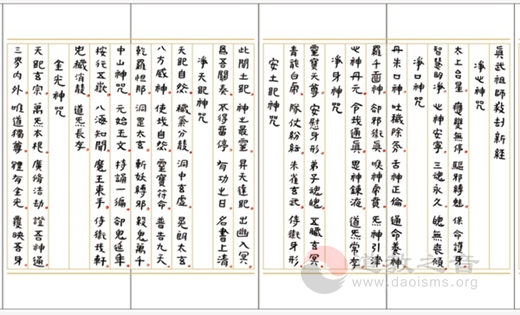 眞武祖師 新經
淨心神咒
太上台星 應變無停 驅邪縛魅 保命護身
智慧明淨 心神安寧 三魂永久 魄無喪傾
淨口神咒
丹朱口神 吐穢除氛 舌神正倫 通命養神
羅千齒神 卻邪衛眞 喉神虎賁 炁神引津
心神丹元 令我通眞 思神鍊液 道炁常存
淨身神咒
靈寶天尊 安慰身形 弟子魂魄 五臟玄冥
青龍白虎 隊仗紛紜 朱雀玄武 侍衛身形
安土地神咒
此間土地 神之最靈 昇天達地 出幽入冥
爲吾關奏 不得留停 有功之日 名書上清
淨天地神咒
天地自然 穢炁分散 洞中玄虛 晃朗太玄
八方威神 使我自然 靈寶符命 普告九天
乾羅怛那 洞罡太玄 斬妖縛邪 殺鬼萬千
中山神咒 元始玉文 持誦一遍 卻鬼延年
按行五嶽 八海知聞 魔王束手 侍衛我軒
兇穢消散 道炁長存
金光神咒
天地玄宗 萬炁本根 廣修浩劫 證吾神通
三界內外 唯道獨尊 體有金光 覆映吾身
道教之音
www.daoisms.org